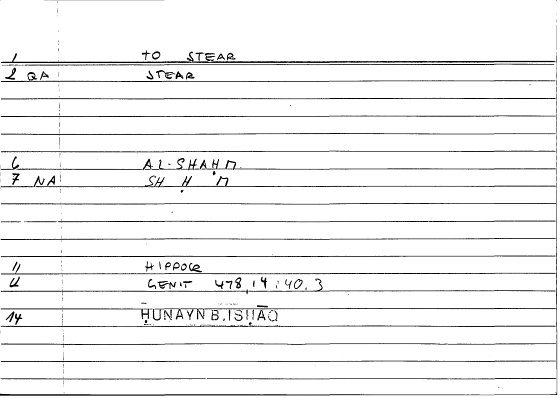 1 TO STEAR
2 QA STEAR
6 AL-SHAḤM
7 NA SH Ḥ M
11 HIPPOCR
12 GENIT 478,14:40.3
14 ḤUNAYN B.ISḤĀQ